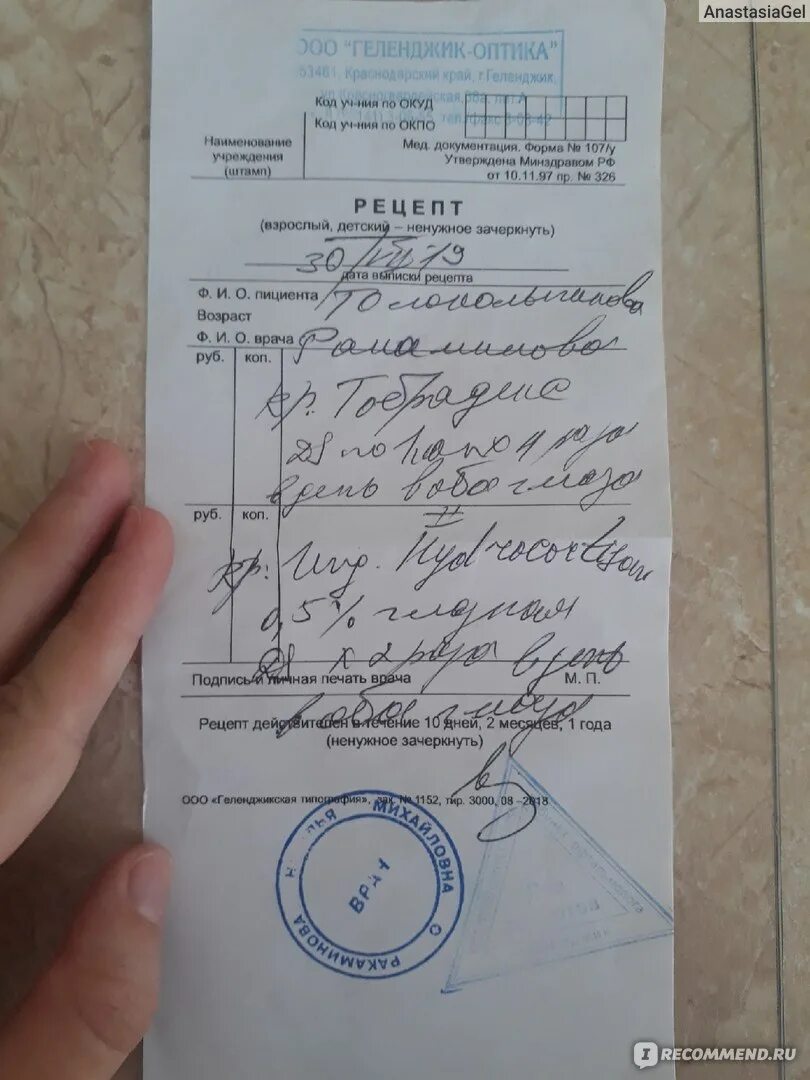 AnastasiaGel
ООО "ГЕЛЕНДЖИК-ОПТИКА"
353461, Краснодарский край, г. Геленджик,
Код уч-ния по ОКУД
Код уч-ния по ОКПО
Наименование
учреждения
(штамп)
Мед. документация. Форма № 107/у
Утверждена Минздравом РФ
от 10.11.97 пр. № 326
РЕЦЕПТ
(взрослый, детский – ненужное зачеркнуть)
30/VII 19
дата выписки рецепта
Ф. И. О. пициента
Возраст
Ф. И. О. врача Ракаминова
руб. коп.
Rp: Тобрадекс
DS по 1 кап 4 раза
в день в оба глаза
руб. коп.
II
Rp: Ung. Hydrocortisoni
0,5% глазная
DS х 2 раза в день
Подпись и личная печать врача М. П.
в оба глаза
Рецепт действителен в течение 10 дней, 2 месяцев, 1 года
(ненужное зачеркнуть)
ООО «Геленджикская типография», зак. № 1152, тир. 3000, 08 –2018
МИХАЙЛОВНА
РАКАМИНОВА
ВРАЧ
IRECOMMEND.RU